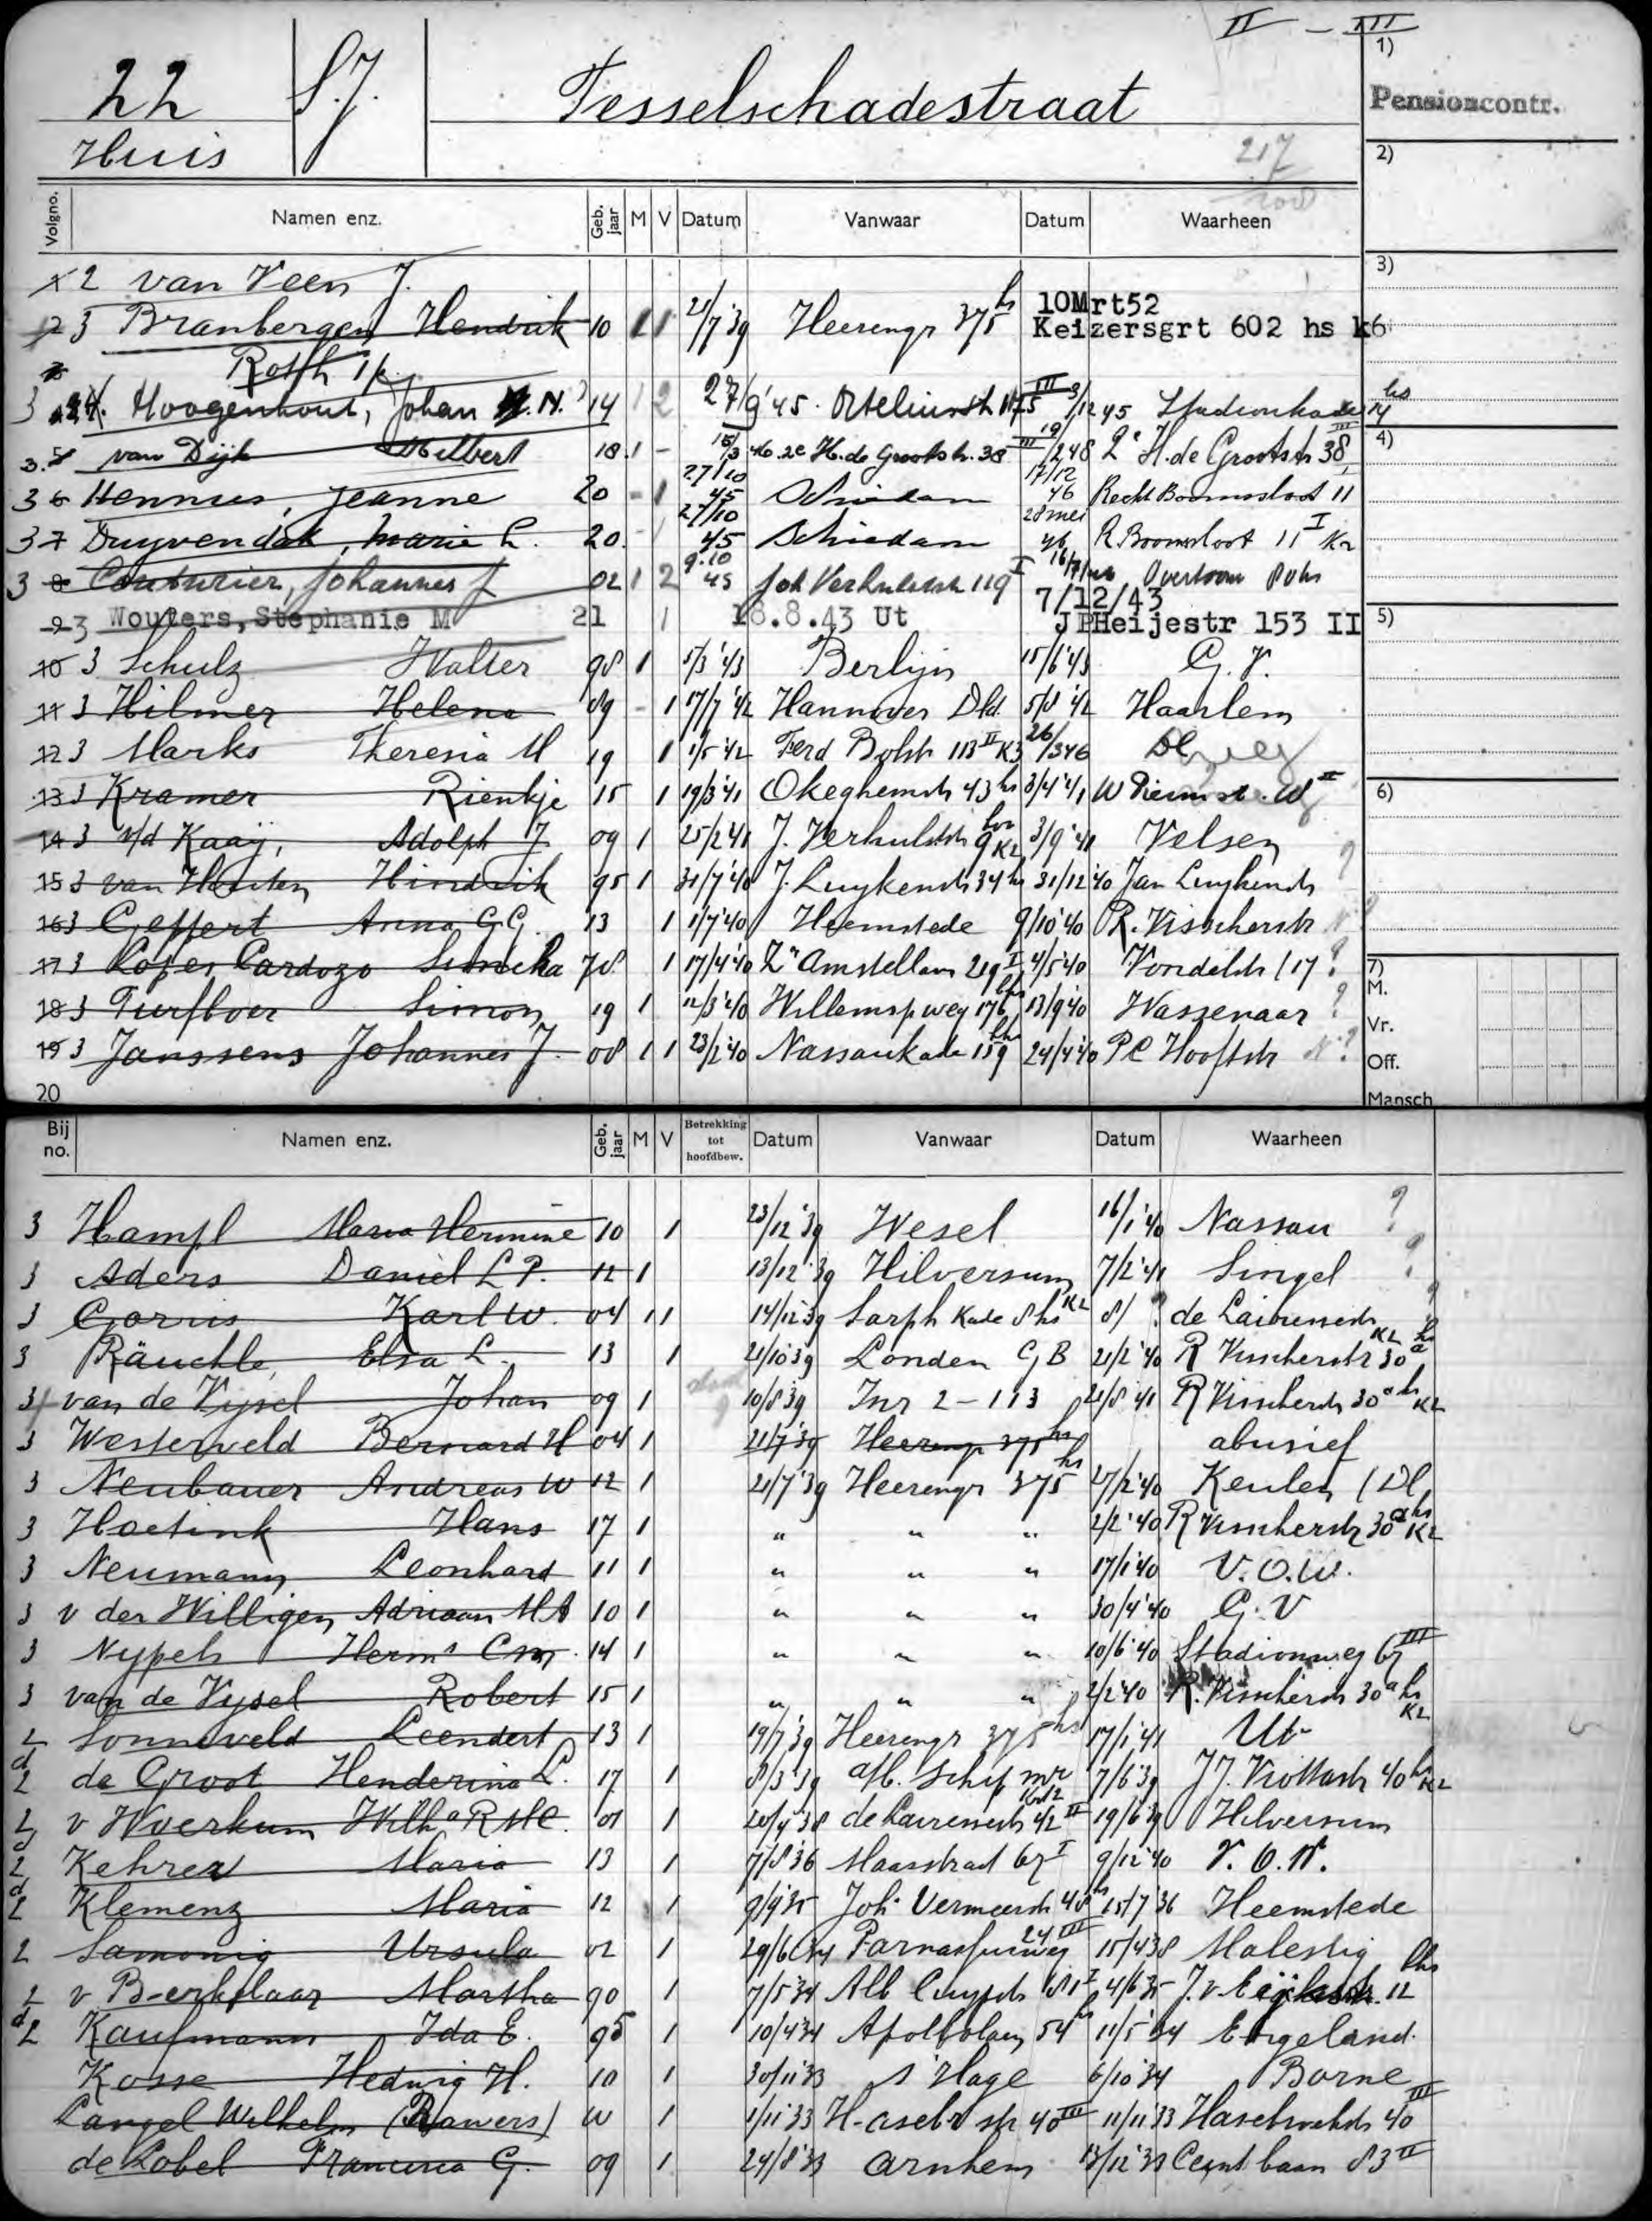 II - III
22 S.J. Tesselschadestraat
Huis
217
1)
Pensioncontr.
2)
Volgno. Namen enz. Geb. jaar M V Datum Vanwaar Datum Waarheen
3)
2 van Veen J.
3 Branbergen Hendrik 10 1 1 21/7'39 Heerengr 375 hs 10Mrt52 Keizersgrt 602 hs k6
Roth
3 Hoogenhout, Johan N. 14 1 2 27/9'45 Orteliusstr 3/12 45 Stadionkade hs
4)
3 van Dijk Hilbert 18 1 - 15/3 46 2e H. de Grootstr. 38 III 19/2 48 2e H. de Grootstr 38 III
3 6 Hennus, Jeanne 20 - 1 27/10 45 Schiedam 17/12 46 Recht Boomssloot 11
3 7 Duyvendak, Marie C. 20 - 1 27/10 45 Schiedam 28 mei 46 R Boomssloot 11 I K2
3 8 Couturier, Johannes J 02 1 2 9.10 45 Joh Verhulststr 119 I Overtoom
9 3 Wouters, Stephanie M 21 1 18.8.43 Ut 7/12/43 JPHeijestr 153 II
5)
10 3 Schulz Walter 98 1 5/3'43 Berlijn 15/6'43 G. V.
11 3 Hilmer Helena 89 - 1 17/7'42 Hannover Dld 5/8'42 Haarlem
12 3 Marks Theresia M 19 1 1/5'42 Ferd Bolstr 113 II K3 26/3 46
6)
13 3 Kramer Rienkje 15 1 19/3'41 Okeghemstr 43 hs 3/4'41
14 3 v/d Kaaij, Adolph J. 09 1 25/2 41 J. Verhulststr 9 hs K2 3/9'41 Velsen
15 3 van Houten Hindrik 95 1 31/7'40 J. Luykenstr 34 hs 31/12'40 Jan Luykenstr ?
16 3 Geffert Anna G.G. 13 1 1/7'40 Heemstede 9/10'40 R. Visscherstr
17 3 Lopes Cardozo Simcha 78 1 17/4'40 Zr Amstellaan 219 I 4/5'40 Vondelstr 117 ?
7)
M.
18 3 Turfboer Simon 19 1 12/3'40 Willemspweg 176 hs 13/9'40 Wassenaar ?
Vr.
19 3 Janssens Johannes J. 08 1 1 23/2'40 Nassaukade 159 hs 24/4'40 PC Hooftstr ?
Off.
20
Mansch
Bij no. Namen enz. Geb. jaar M V Betrekking tot hoofdbew. Datum Vanwaar Datum Waarheen
3 Hampl Maria Hermine 10 1 23/12'39 Wesel 16/1'40 Nassau ?
3 Aders Daniel L P. 12 1 13/12'39 Hilversum 7/2'41 Singel ?
3 Gorris Karl W. 04 1 1 14/12'39 Sarph Kade 8 hs K2 8/ ? de Lairessestr ?
3 Räuchle, Elsa L. 13 1 21/10'39 Londen GB 21/2'40 R Visscherstr 30 a hs K2
3 van de Vijsel Johan 09 1 10/8'39 Inr 2-113 21/8'41 R Visscherstr 30 a hs K2
3 Westerveld Bernard H 04 1 21/7'39 Heerengr 375 hs abusief
3 Neubauer Andreas W 12 1 21/7'39 Heerengr 375 hs 27/2'40 Keulen (Dl
3 Hoetink Hans 17 1 " " " 2/2'40 R Visscherstr 30 a hs K2
3 Neumann Leonhard 11 1 " " " 17/1'40 V.O.W.
3 v der Willigen Adriaan M A 10 1 " " " 30/4'40 G. V
3 Nypels Herms C M. 14 1 " " " 10/6'40 Stadionweg 67 III
3 van de Vijsel Robert 15 1 " " " 2/2'40 R. Visscherstr 30 a hs K2
2 Sonneveld Leendert 13 1 19/7'39 Heerengr 375 hs 17/1'41 Ut
d 2 de Groot Henderina L. 17 1 8/3 39 a/b. Schip mr 7/6'39 J.J. Viottastr 40 hs K2
2 v Woerkum Wilha R M C. 01 1 20/4'38 de Lairessestr 42 II 19/6'39 Hilversum
d 2 Kehrer Maria 13 1 7/8'36 Maasstraat 67 I 9/12'40 V. O. W.
d 2 Klemenz Maria 12 1 9/9'35 Joh Vermeerstr 48 hs 15/7'36 Heemstede
2 Samonig Ursula 02 1 29/6'34 Parnassusweg 24 III 15/4 38 Malestig
2 v Berkelaar Martha 90 1 7/5'34 Alb Cuypstr 181 I 4/6'35 J. v Eijkstr. 12 hs
d 2 Kaufmann Ida E. 95 1 10/4'34 Apollolaan 54 hs 11/5'34 Engeland.
Kosse Hedwig H. 10 1 30/11'33 s'Hage 6/10'34 Borne
Langel Wilhelm (Bauers) 1 1/11'33 H-asebr str 40 III 11/11'33 Hasebroekstr 40 III
de Lobel Francisca G. 09 1 24/8'33 Arnhem 13/12'33 Ceintbaan 83 II